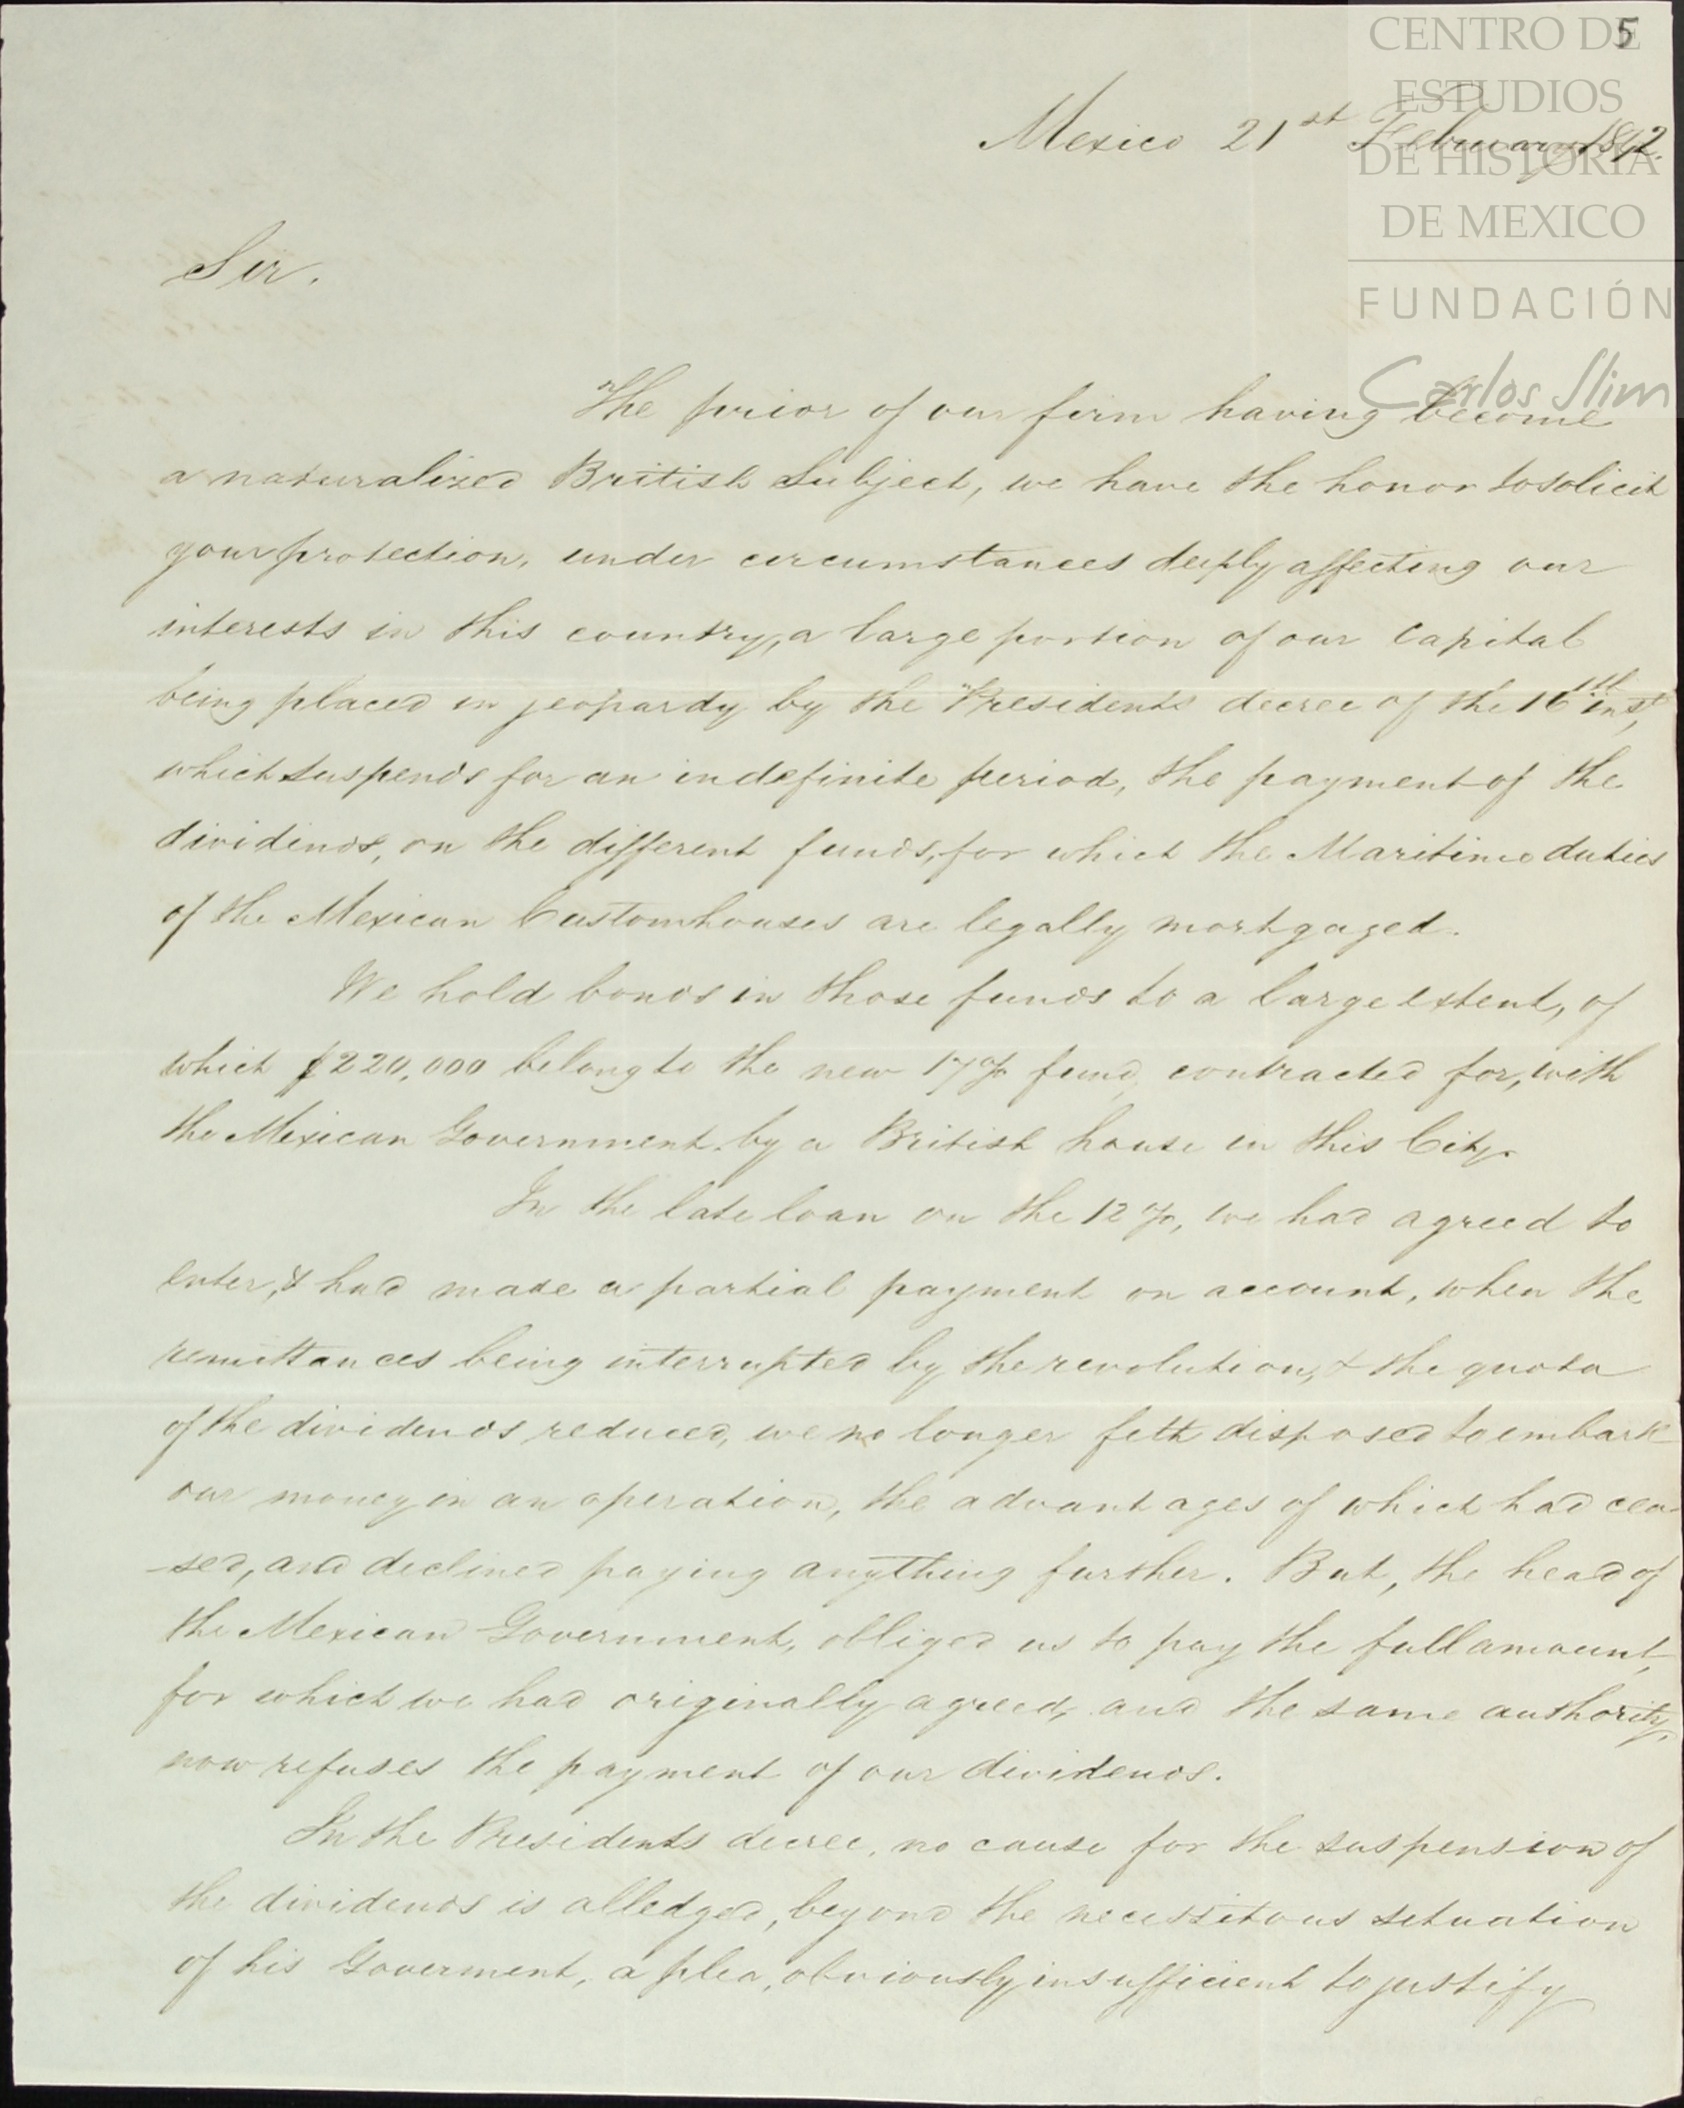 5
CENTRO DE
ESTUDIOS
DE HISTORIA
DE MEXICO
FUNDACIÓN
Carlos Slim
Mexico 21st February 1842.
Sir.
The prior of our firm having become
a naturalized British Subject, we have the honor to solicit
your protection, under circumstances deeply affecting our
interests in this country, a large portion of our Capital
being placed in jeopardy by the Presidents decree of the 16th inst,
which suspends for an indefinite period, the payment of the
dividends, on the different funds, for which the Maritime duties
of the Mexican Customhouses are legally mortgaged.
We hold bonds in those funds to a large extent, of
which $220,000 belong to the new 17% fund, contracted for, with
the Mexican Government by a British house in this City.
In the late loan on the 12%, we had agreed to
enter, & had made a partial payment on account, when the
remittances being interrupted by the revolution, & the quota
of the dividends reduced, we no longer felt disposed to embark
our money in an operation, the advantages of which had cea-
-sed, and declined paying anything further. But, the head of
the Mexican Government, obliged us to pay the full amount,
for which we had originally agreed, and the same authority,
now refuses the payment of our dividends.
In the Presidents decree, no cause for the suspension of
the dividends is alledged, beyond the necessitous situation
of his Goverment, a plea, obviously insufficient to justify